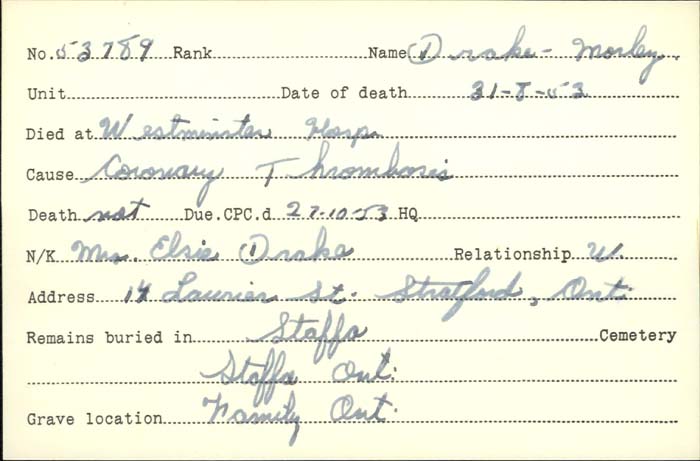 No. 53789 Rank Name Drake - Morley.
Unit Date of death 31-8-53
Died at Westminster Hosp.
Cause Coronary Thrombosis
Death not Due. CPC.d 27-10-53 HQ
N/K Mrs. Elsie Drake Relationship W.
Address 14 Laurier St. Stratford, Ont.
Remains buried in Staffa Cemetery
Staffa Ont.
Grave location Family Ont.